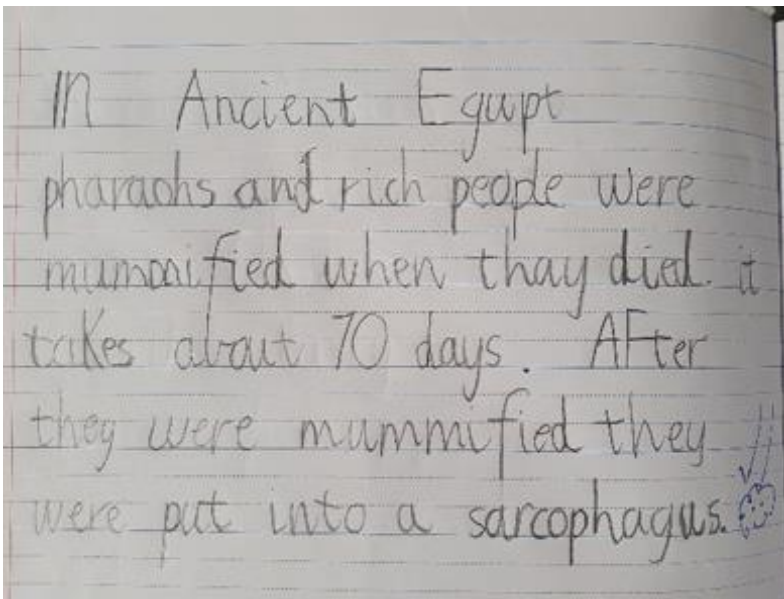 In Ancient Egupt
pharaohs and rich people were
mummified when thay died. it
takes about 70 days. AFter
they were mummified they
were put into a sarcophagus.